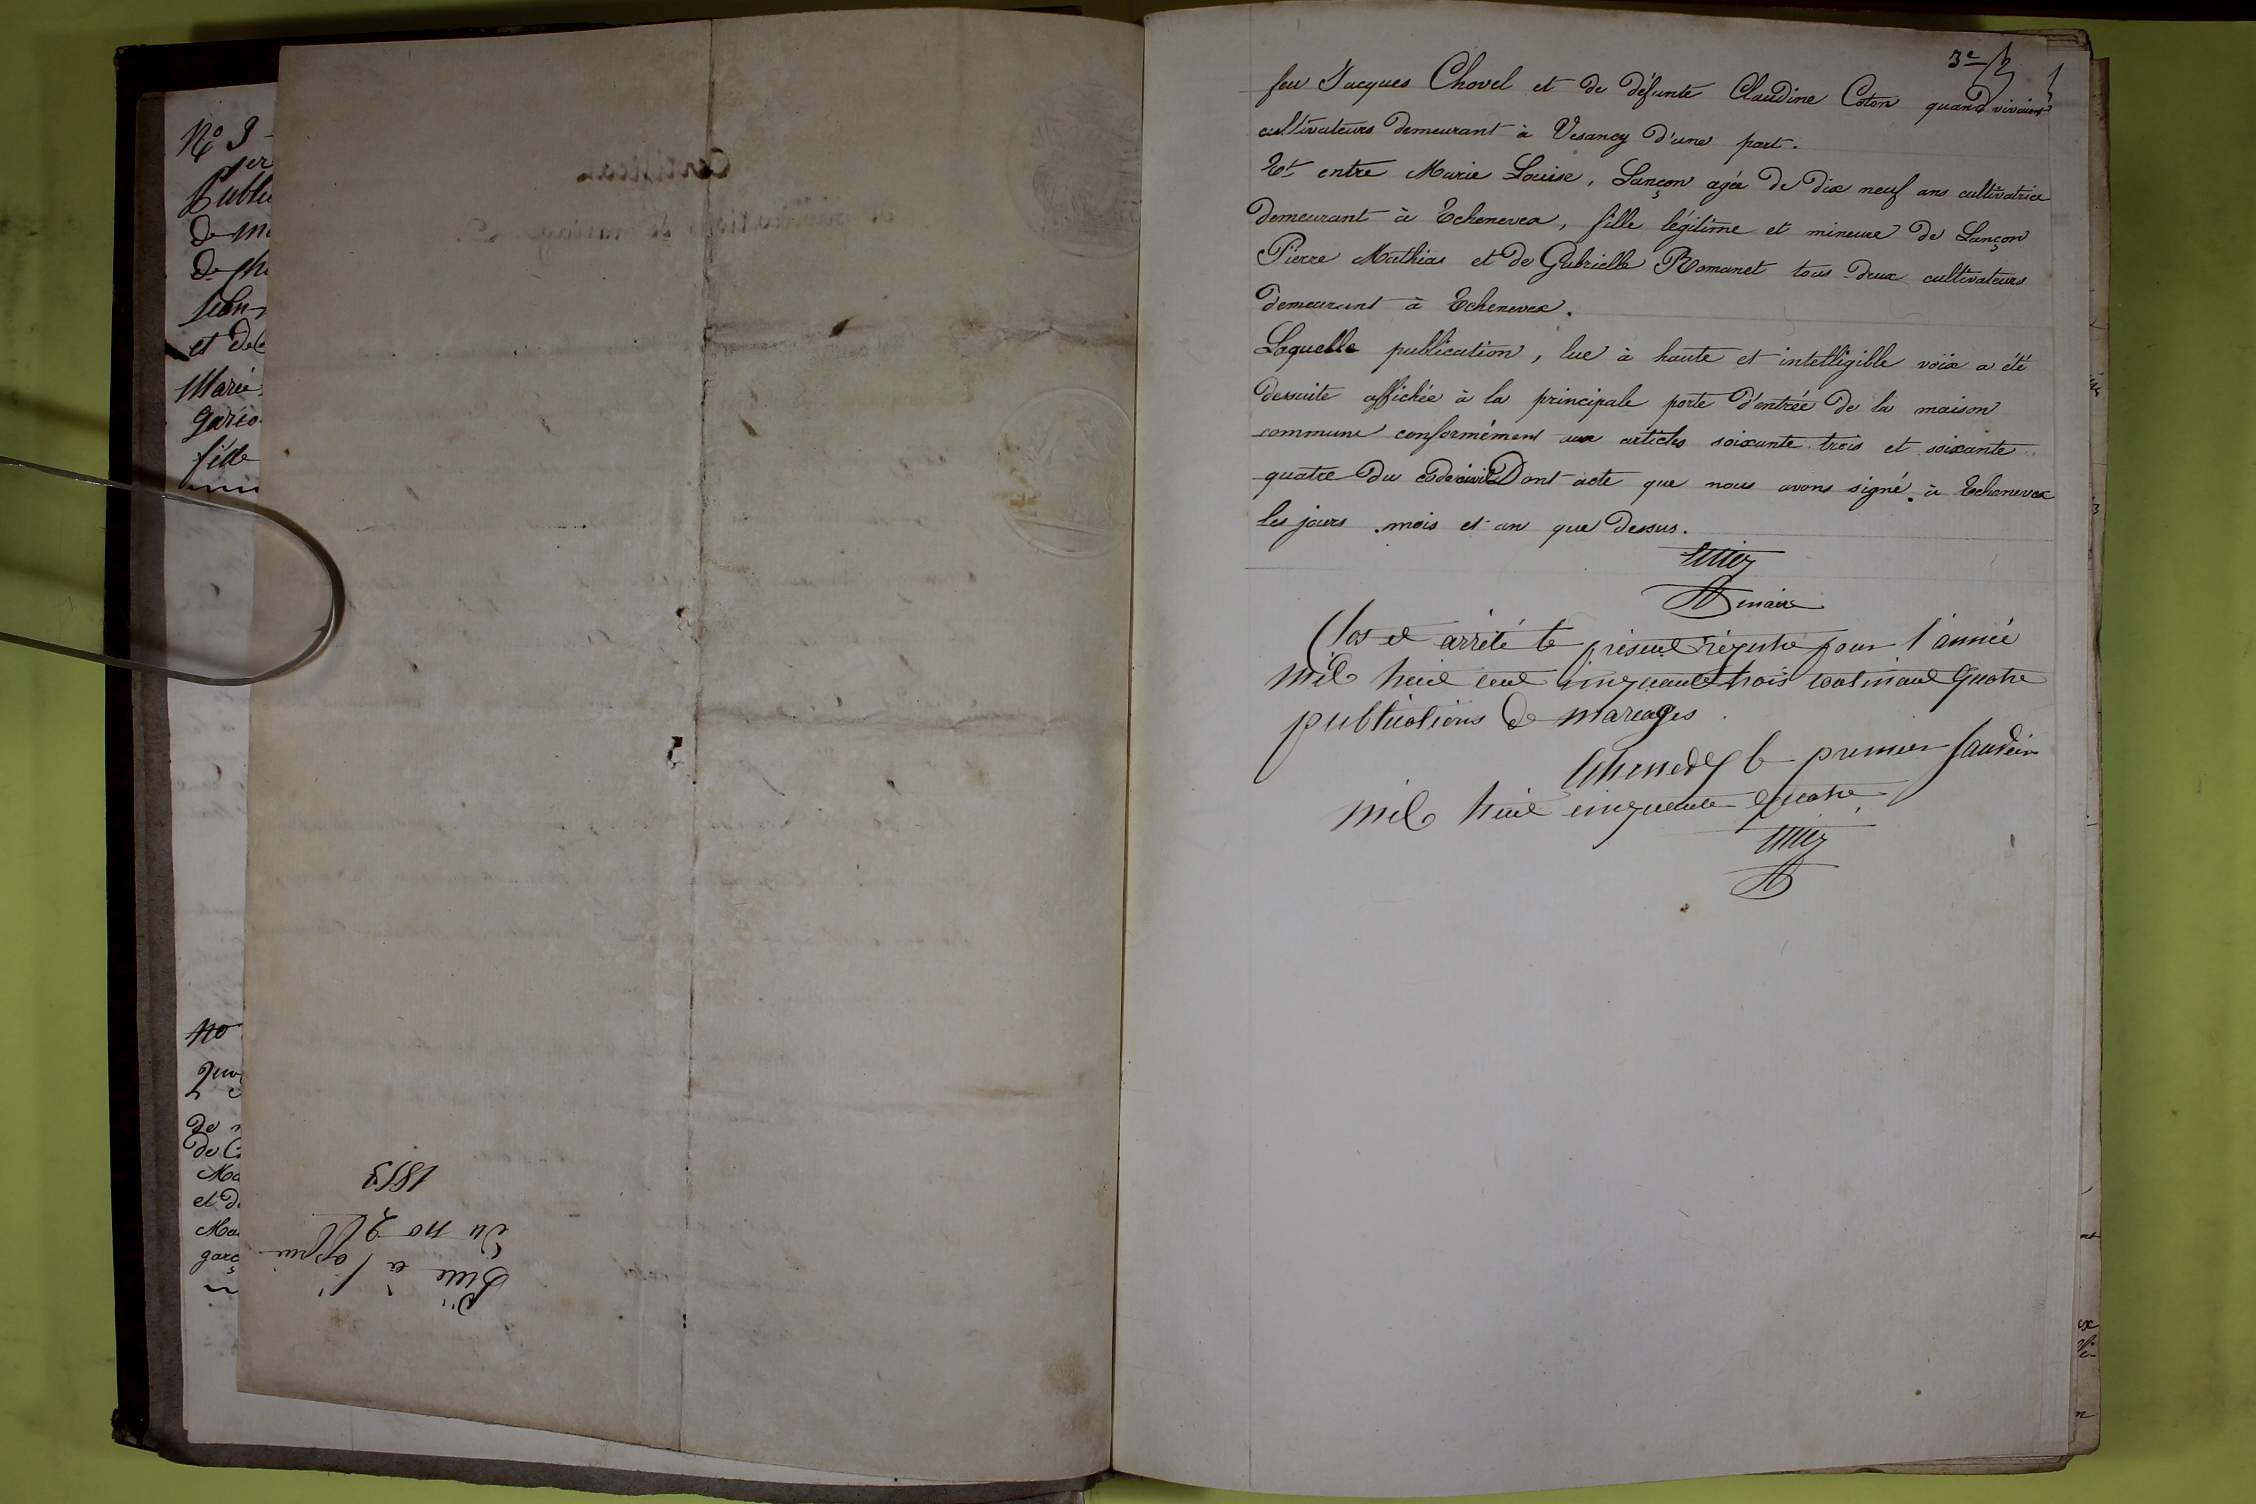 No 9
Publi
de m
de Ch
Jean
et de
Marie
garço
fille
No
de
de C
Ma
et d
Ma
garç
Certificat
de publications de mariages.
Pièce à l'appui
du no 2
1853
3e
feu Jacques Chovel et de défunte Claudine Coton quand vivaient
cultivateurs demeurant à Vesancy d'une part.
Et entre Marie Louise, Lançon agée de dix neuf ans cultivatrice
demeurant à Echenevex, fille légitime et mineure de Lançon
Pierre Mathias et de Gabrielle Romanet tous deux cultivateurs
demeurant à Echenevex.
Laquelle publication, lue à haute et intelligible voix a été
dessuite affichée à la principale porte d'entrée de la maison
commune conformément aux articles soixante trois et soixante
quatre du code civil Dont acte que nous avons signé. à Echenevex
les jours mois et an que dessus.
maire
Clos et arrêté le présent régistre pour l'année
mil huit cent cinquante trois contenant quatre
publications de mariages.
Echenevex le premier janvier
mil huit cinquante quatre